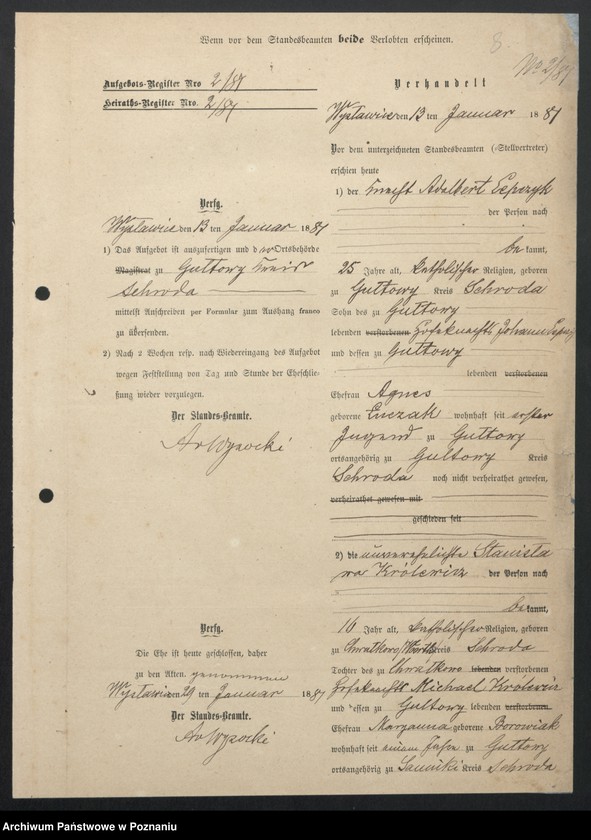 Wenn vor dem Standesbeamten beide Verlobten erscheinen.
8.
No 2/87
Aufgebots-Register Nro 2/87
Heiraths-Register Nro. 2/87
Verfg.
den 13 ten Januar 1887
1) Das Aufgebot ist auszufertigen und d Ortsbehörde
Magistrat zu Guttowy Kreis
Schroda
mittelst Anschreiben per Formular zum Aushang franco
zu übersenden.
2) Nach 2 Wochen resp. nach Wiedereingang des Aufgebot
wegen Feststellung von Tag und Stunde der Eheschlie-
ßung wieder vorzulegen.
Der Standes-Beamte.
Verfg.
Die Ehe ist heute geschlossen, daher
zu den Akten. genommen
den 29 ten Januar 1887
Der Standes-Beamte.
Verhandelt
den 13 ten Januar 1887
Vor dem unterzeichneten Standesbeamten (-Stellvertreter)
erschien heute
1) der Knecht Adalbert
der Person nach
bekannt,
25 Jahre alt, katholischer Religion, geboren
zu Guttowy Kreis Schroda
Sohn des zu Guttowy
lebenden verstorbenen Johann
und dessen zu Guttowy
lebenden verstorbenen
Ehefrau Agnes
geborene Luczak wohnhaft seit erster
Jugend zu Guttowy
ortsangehörig zu Guttowy Kreis
Schroda noch nicht verheirathet gewesen,
verheirathet gewesen mit
geschieden seit
2) die unverehelichte Stanisla
wa Królewicz der Person nach
bekannt,
16 Jahr alt, katholischer Religion, geboren
zu Kreis Schroda
Tochter des zu lebenden verstorbenen
Michael Królewicz
und dessen zu Guttowy lebenden verstorbenen
Ehefrau Maryanna geborene Borowiak
wohnhaft seit einem Jahre zu Guttowy
ortsangehörig zu Kreis Schroda
Archiwum Państwowe w Poznaniu